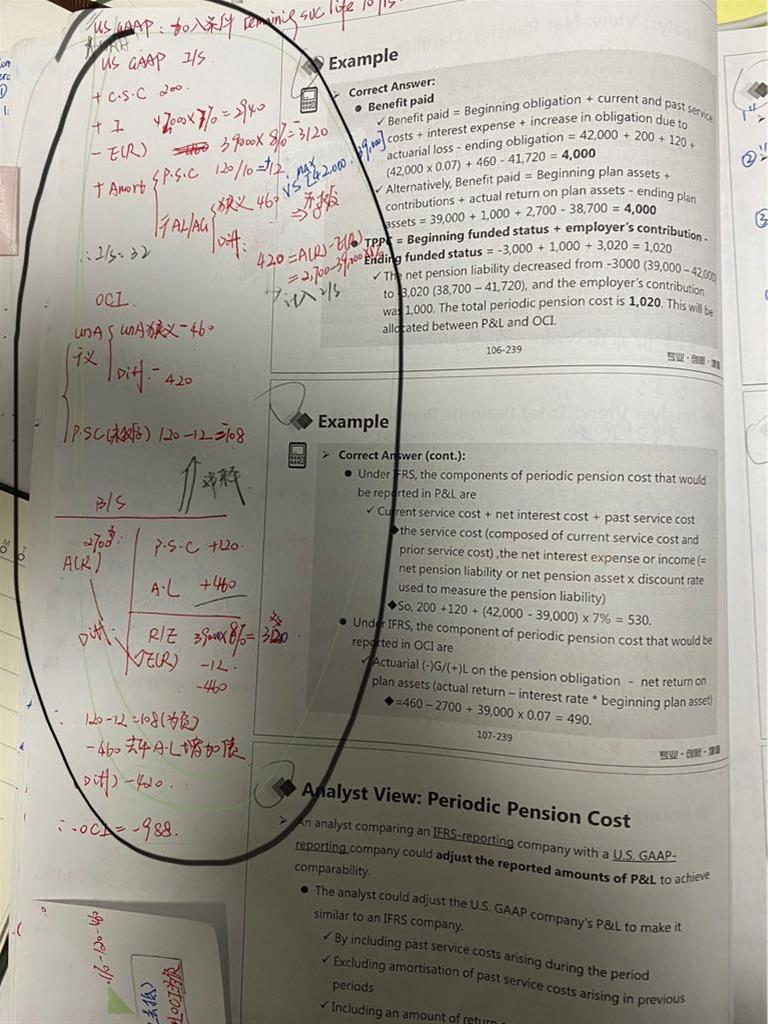 US GAAP: 加入条件 remaining svc life 10
US GAAP I/S
+ C.S.C 200.
+ I 42000 x 7% = 2940
- E(R) 39000 x 8% = 3120
+ Amort P.S.C 120/10 = +12
狭义 460 VS max [42000, 39,000]
Diff: 420 = A(R) - E(R)
= 2,700 - 39,000 x 8%
→ 计入 I/S
∴ I/S = 32
OCI
狭义 - 460
Diff - 420
P.S.C 120 - 12 = 108
B/S
A(R)
P.S.C +120
A.L +460
Diff
R/E 39000 x 8% = 3120
E(R) -12
-460
∴ 120 - 12 = 108
- 460 A.L 增加
Diff) - 420.
∴ OCI = - 988.
Example
➢ Correct Answer:
● Benefit paid
✓ Benefit paid = Beginning obligation + current and past service
costs + interest expense + increase in obligation due to
actuarial loss - ending obligation = 42,000 + 200 + 120 +
(42,000 x 0.07) + 460 - 41,720 = 4,000
✓ Alternatively, Benefit paid = Beginning plan assets +
contributions + actual return on plan assets - ending plan
assets = 39,000 + 1,000 + 2,700 - 38,700 = 4,000
● TPPC = Beginning funded status + employer's contribution -
Ending funded status = -3,000 + 1,000 + 3,020 = 1,020
✓ The net pension liability decreased from -3000 (39,000 – 42,000)
to -3,020 (38,700 – 41,720), and the employer's contribution
was 1,000. The total periodic pension cost is 1,020. This will be
allocated between P&L and OCI.
106-239
专业·创新·增值
Example
➢ Correct Answer (cont.):
● Under IFRS, the components of periodic pension cost that would
be reported in P&L are
✓ Current service cost + net interest cost + past service cost
◆the service cost (composed of current service cost and
prior service cost) ,the net interest expense or income (=
net pension liability or net pension asset x discount rate
used to measure the pension liability)
◆So, 200 +120 + (42,000 - 39,000) x 7% = 530.
● Under IFRS, the component of periodic pension cost that would be
reported in OCI are
✓ Actuarial (-)G/(+)L on the pension obligation - net return on
plan assets (actual return – interest rate * beginning plan asset)
◆=460 – 2700 + 39,000 x 0.07 = 490.
107-239
专业·创新·增值
Analyst View: Periodic Pension Cost
➢ An analyst comparing an IFRS-reporting company with a U.S. GAAP-
reporting company could adjust the reported amounts of P&L to achieve
comparability.
● The analyst could adjust the U.S. GAAP company's P&L to make it
similar to an IFRS company.
✓ By including past service costs arising during the period
✓ Excluding amortisation of past service costs arising in previous
periods
✓ Including an amount of return